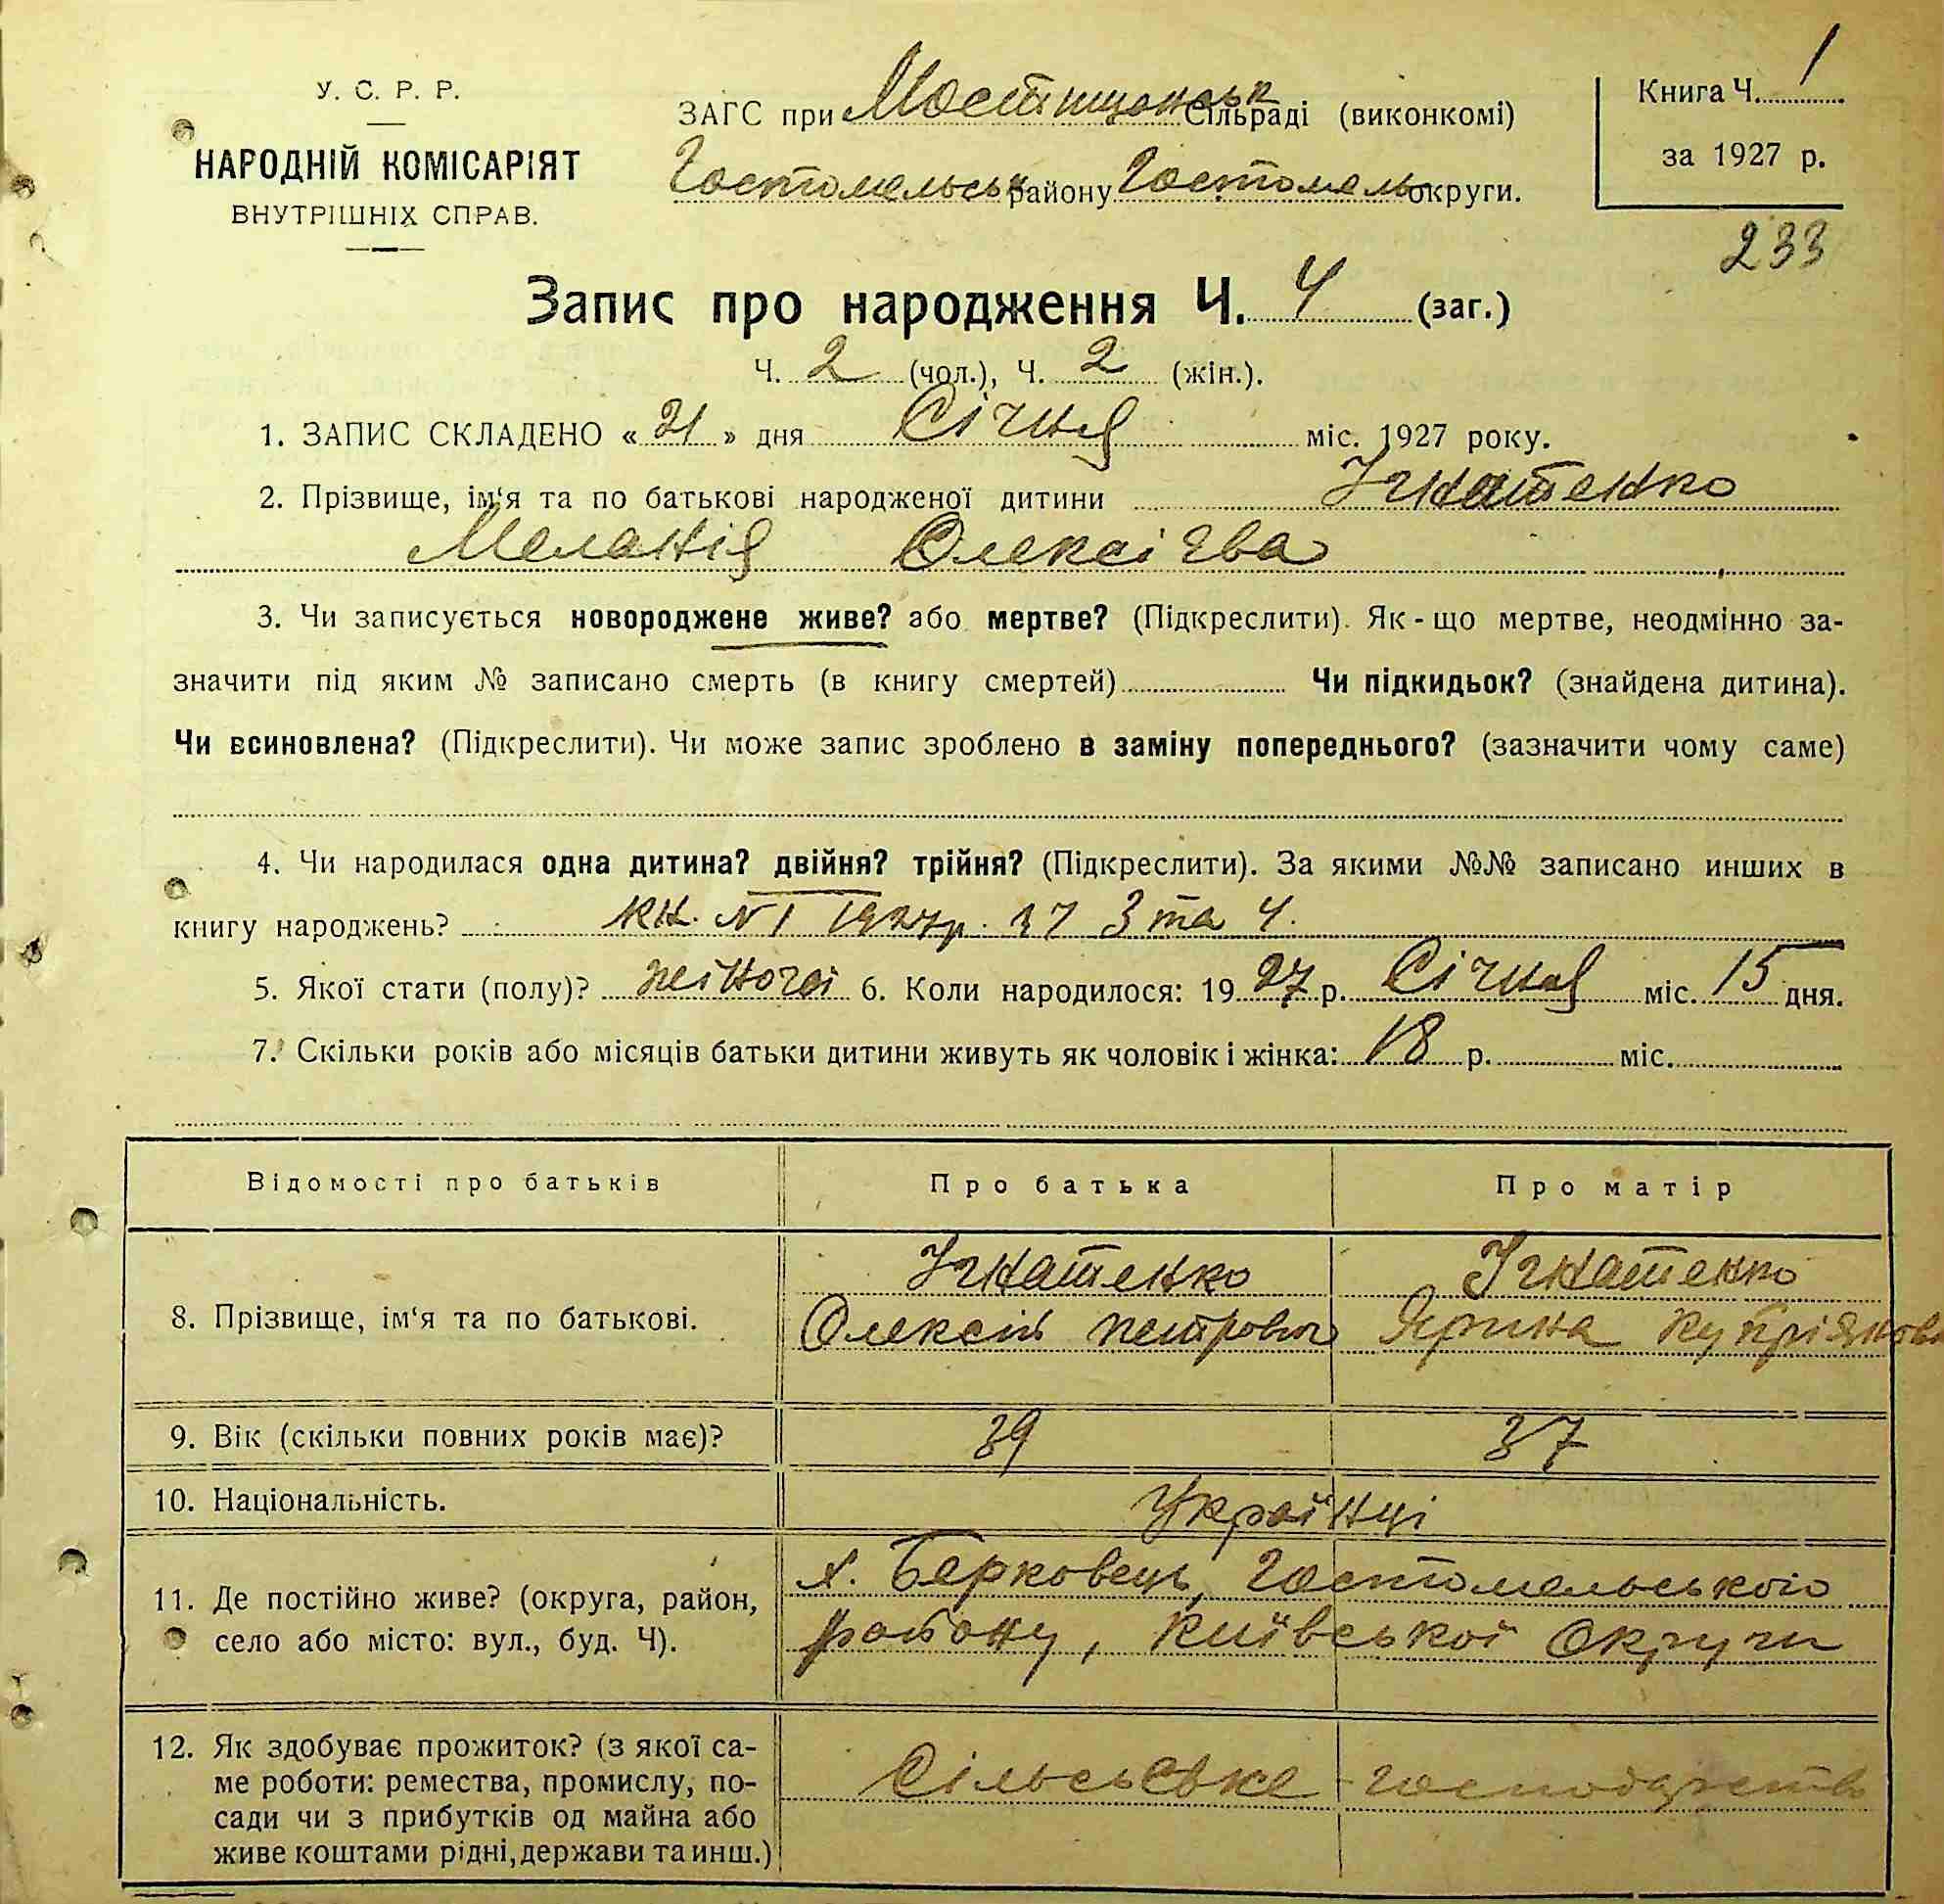 У. С. Р. Р.
НАРОДНІЙ КОМІСАРІЯТ
ВНУТРІШНІХ СПРАВ.
ЗАГС при Мостищанськ Сільраді (виконкомі)
Гостомельськ району Гостомель округи.
Книга Ч. 1
за 1927 р.
233
Запис про народження Ч. 4 (заг.)
Ч. 2 (чол.), Ч. 2 (жін.).
1. ЗАПИС СКЛАДЕНО « 21 » дня Січня міс. 1927 року.
2. Прізвище, ім'я та по батькові народженої дитини Ігнатенко
Меланія Олексієва
3. Чи записується новороджене живе? або мертве? (Підкреслити). Як-що мертве, неодмінно за-
значити під яким № записано смерть (в книгу смертей) Чи підкидьок? (знайдена дитина).
Чи всиновлена? (Підкреслити). Чи може запис зроблено в заміну попереднього? (зазначити чому саме)
4. Чи народилася одна дитина? двійня? трійня? (Підкреслити). За якими №№ записано инших в
книгу народжень? кн. №1 1927р. 3 та 4.
5. Якої стати (полу)? жіночої 6. Коли народилося: 1927 р. Січня міс. 15 дня.
7. Скільки років або місяців батьки дитини живуть як чоловік і жінка: 18 р. міс.
Відомості про батьків Про батька Про матір
8. Прізвище, ім'я та по батькові. Ігнатенко Ігнатенко
Олексій петрович Ярина Купріянова
9. Вік (скільки повних років має)? 39 37
10. Національність. Українці
11. Де постійно живе? (округа, район,
село або місто: вул., буд. Ч).
х. Берковець, Гостомельського
району, Київської Округи
12. Як здобуває прожиток? (з якої са-
ме роботи: ремества, промислу, по-
сади чи з прибутків од майна або
живе коштами рідні, держави та инш.)
Сільське господарств